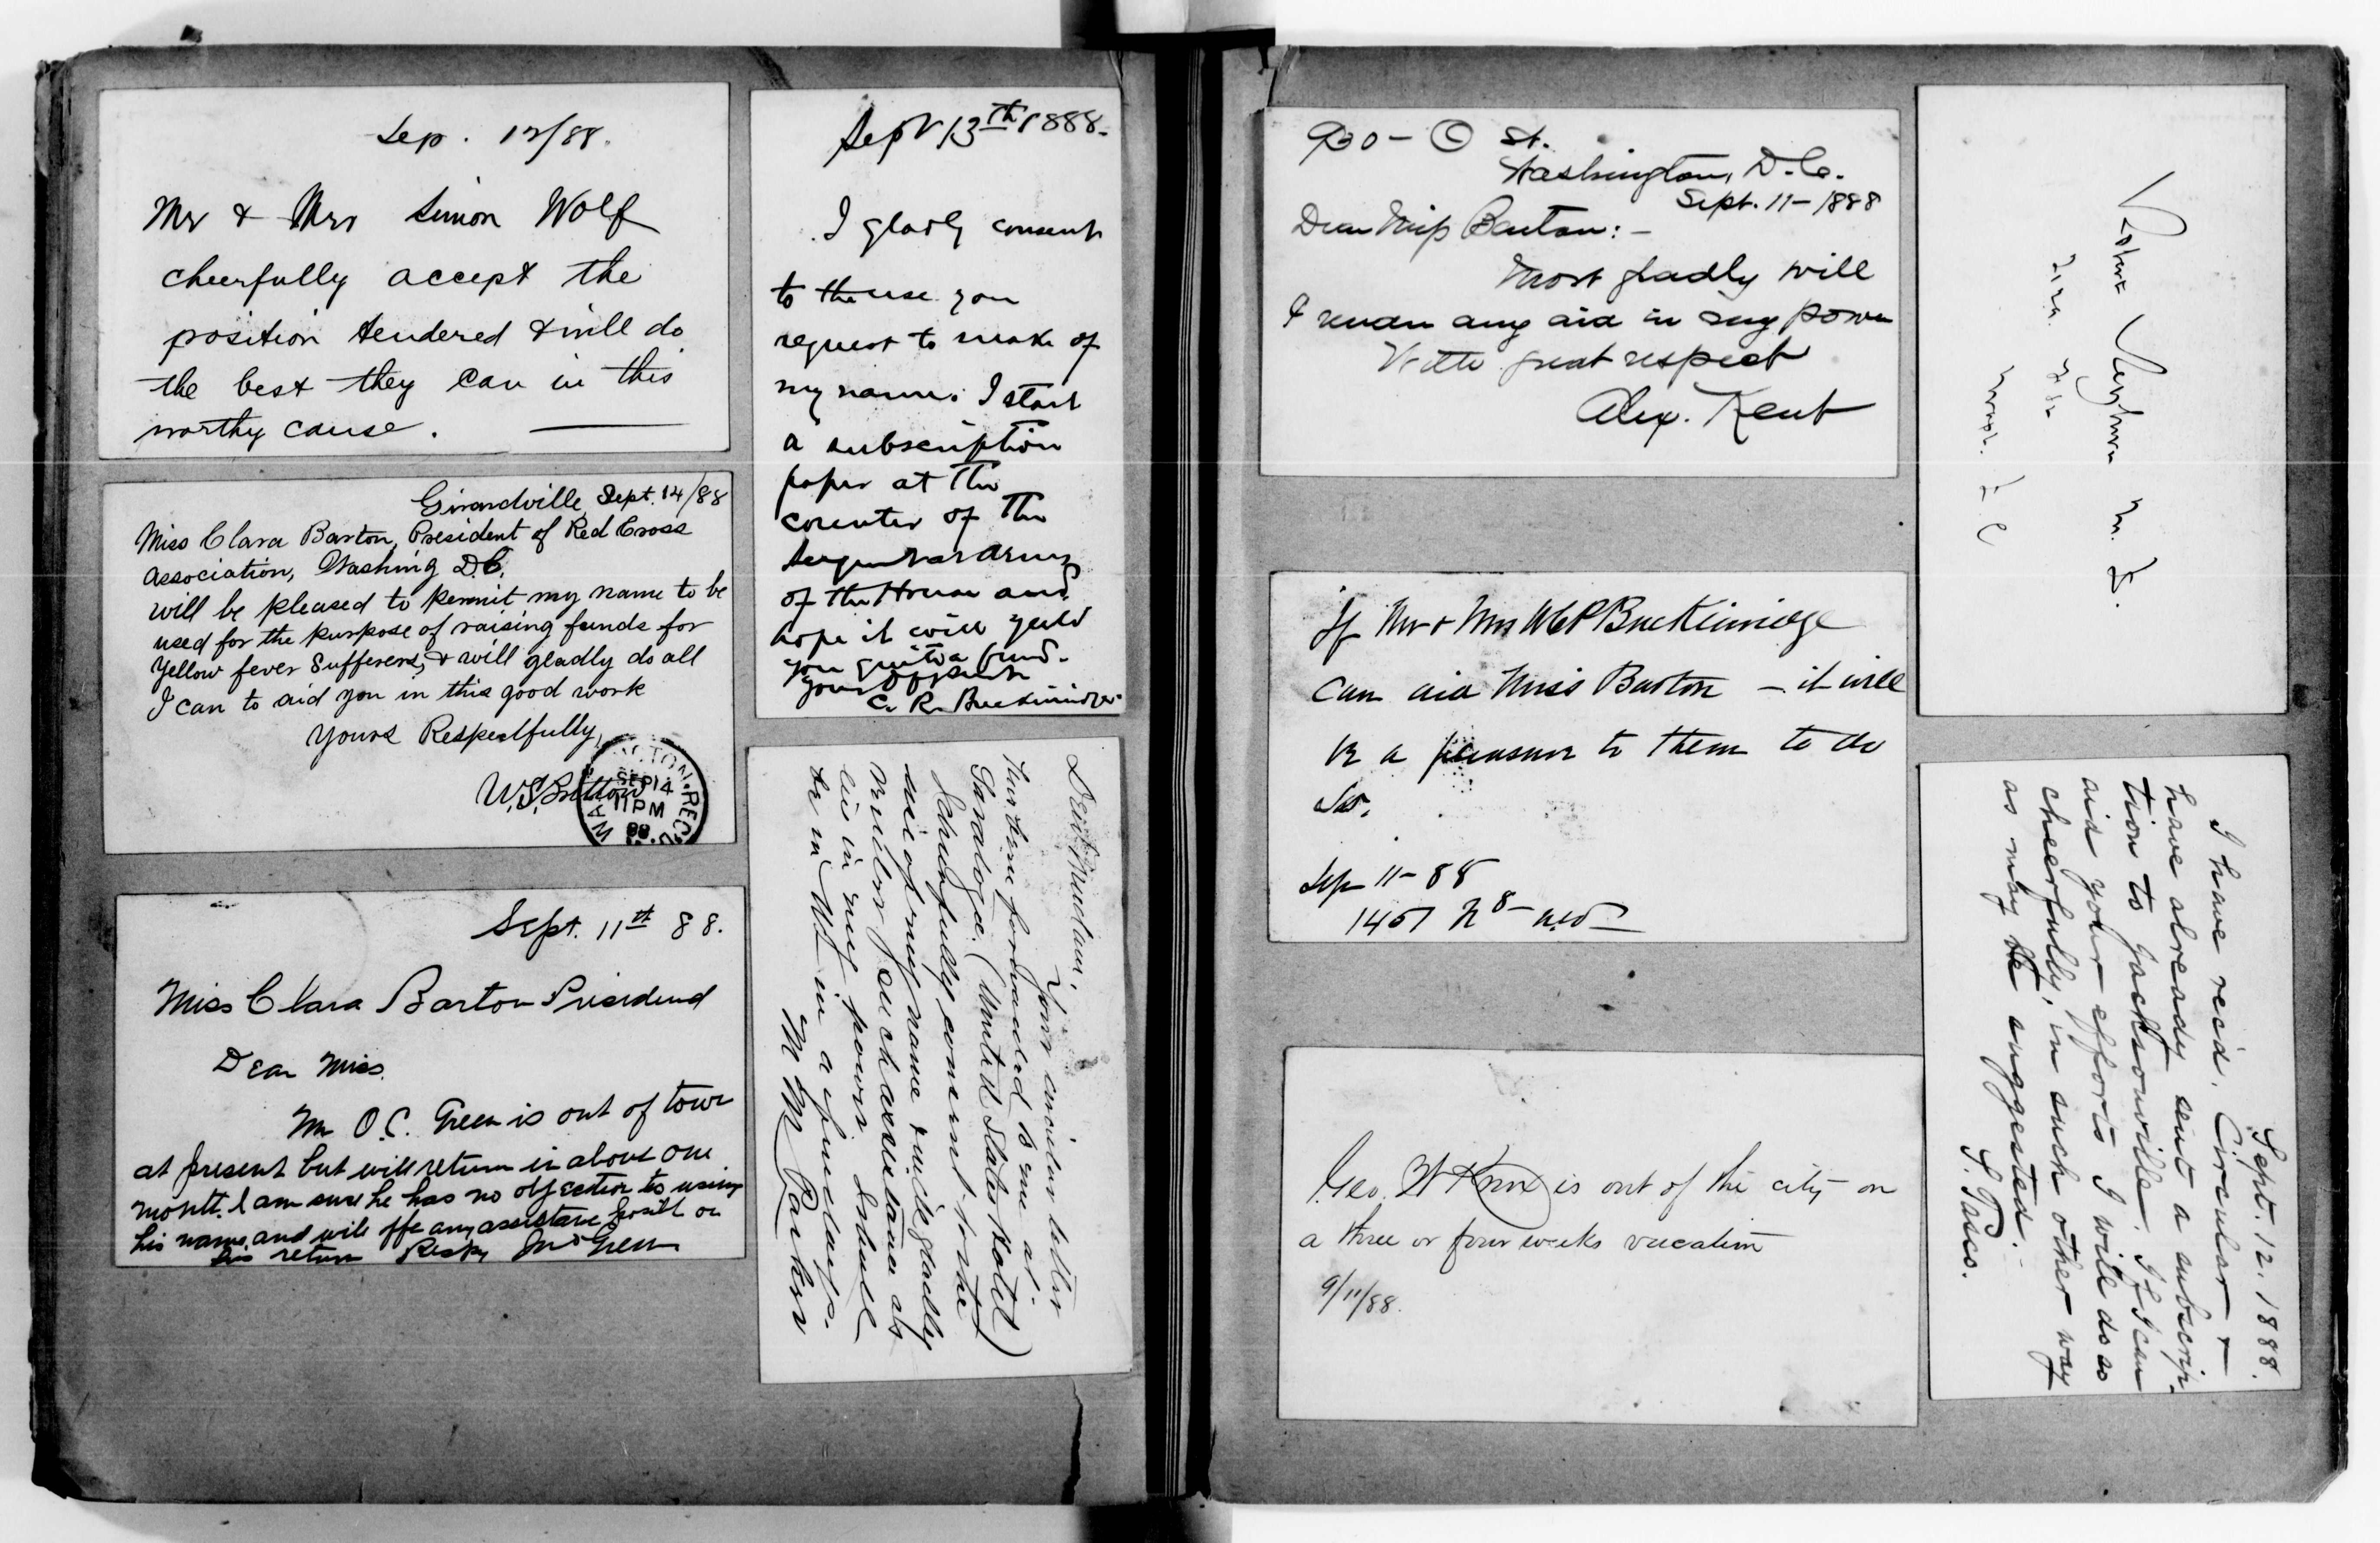 Sep. 12/88.
Mr & Mrs Simon Wolf
cheerfully accept the
position tendered & will do
the best they can in this
worthy cause.
Girardville, Sept. 14/88
Miss Clara Barton, President of Red Cross
Association, Washing D.C.
will be pleased to permit my name to be
used for the purpose of raising funds for
Yellow fever Sufferers, & will gladly do all
I can to aid you in this good work
Yours Respectfully,
W.S.
WASHINGTON REC'D.
SEP 14
11 PM
88
Sept. 11th 88.
Miss Clara Barton President
Dear Miss.
Mr O.C. Green is out of town
at present but will return in about one
month. I am sure he has no objection to using
his name and will offe any assistance possible on
his return Respy Green
Sept 13th 1888.
I gladly consent
to the use you
request to make of
my name. I start
a subscription
paper at the
counter of the
Sergeant at arms
of the House and
hope it will yield
you quite a fund.
Your
C. R. Breckinridge
Dear Madam,
Your circular letter
has been forwarded to me at
Saratoga. (United States Hotel)
I cheerfully consent to the
use of my name & will gladly
render such assistance as
lies in my power. I shall
be in in a few days.
M M Parker
930 - O St.
Washington, D.C.
Sept. 11 - 1888
Dear Miss Barton: -
Most gladly will
I render any aid in my power
With great respect
Alex. Kent
If Mr & Mrs W C P Breckinridge
can aid Miss Barton - it will
be a pleasure to them to do
so.
Sep 11 - 88
1451
Geo. W Knox is out of the city on
a three or four weeks vacation
9/11/88.
Robert Reyburn M.D.
Sept. 12. 1888.
I have rec'd. Circular &
have already sent a subscrip-
tion to Jacksonville. If I can
aid your efforts I will do so
cheerfully, in such other way
as may be suggested.
S. Pasco.